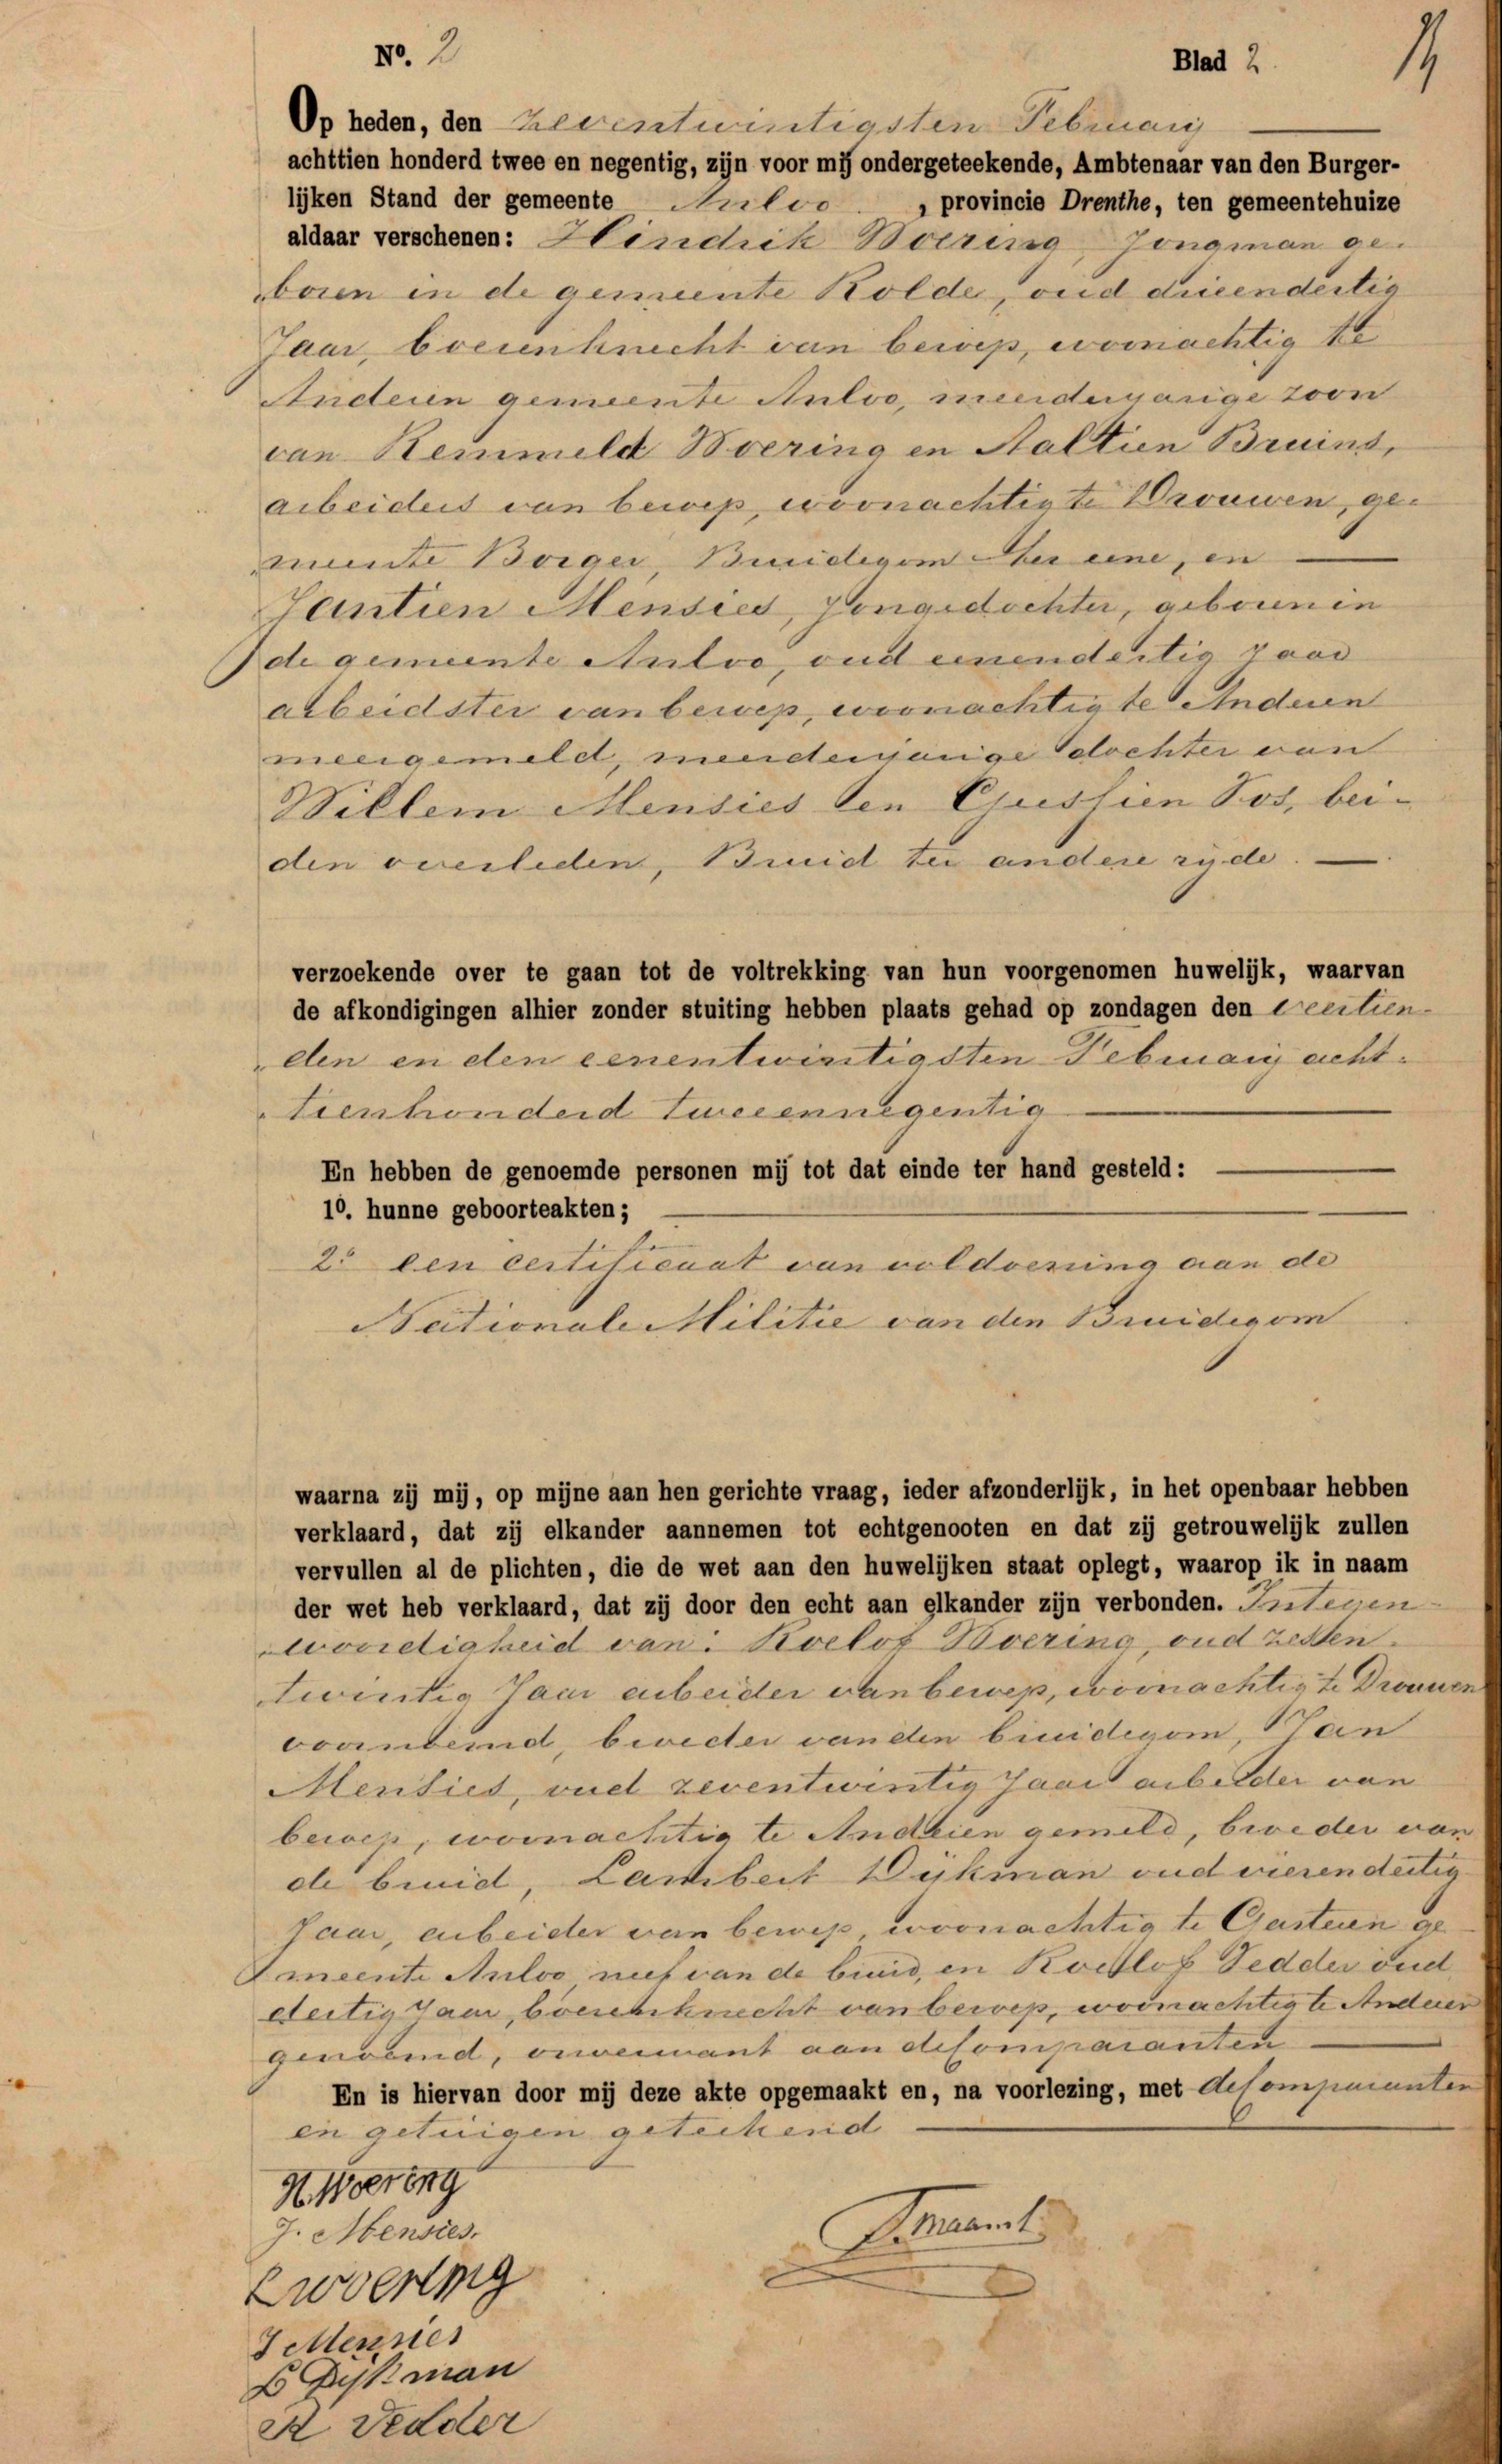 No. 2
Blad 2.
Op heden, den zeventwintigsten Februarij
achttien honderd twee en negentig, zijn voor mij ondergeteekende, Ambtenaar van den Burger-
lijken Stand der gemeente Anloo, provincie Drenthe, ten gemeentehuize
aldaar verschenen: Hindrik Woering, Jongman ge-
boren in de gemeente Rolde, oud drieendertig
Jaar, boerenknecht van beroep, woonachtig te
Anderen gemeente Anloo, meerderjarige zoon
van Remmelt Woering en Aaltien Bruins,
arbeiders van beroep, woonachtig te Drouwen, ge-
meente Borger, Bruidegom ter eene, en
Jantien Mensies, Jongedochter, geboren in
de gemeente Anloo, oud eenendertig Jaar
arbeidster van beroep, woonachtig te Anderen
meergemeld, meerderjarige dochter van
Willem Mensies en Egbertien Vos, bei-
den overleden, Bruid ter andere zijde.
verzoekende over te gaan tot de voltrekking van hun voorgenomen huwelijk, waarvan
de afkondigingen alhier zonder stuiting hebben plaats gehad op zondagen den veertien-
den en den eenentwintigsten Februarij acht-
tienhonderd tweeennegentig
En hebben de genoemde personen mij tot dat einde ter hand gesteld:
1o. hunne geboorteakten;
2o een certificaat van voldoening aan de
Nationale Militie van den Bruidegom
waarna zij mij, op mijne aan hen gerichte vraag, ieder afzonderlijk, in het openbaar hebben
verklaard, dat zij elkander aannemen tot echtgenooten en dat zij getrouwelijk zullen
vervullen al de plichten, die de wet aan den huwelijken staat oplegt, waarop ik in naam
der wet heb verklaard, dat zij door den echt aan elkander zijn verbonden. In tegen-
woordigheid van: Roelof Woering, oud zessen-
twintig Jaar arbeider van beroep, woonachtig te Drouwen
voornoemd, broeder van den bruidegom, Jan
Mensies, oud zeventwintig Jaar arbeider van
beroep, woonachtig te Anderen gemeld, broeder van
de bruid, Lambert Dijkman oud vierendertig
Jaar, arbeider van beroep, woonachtig te Gasteren ge-
meente Anloo neef van de bruid, en Roelof Vedder oud
dertig Jaar, boerenknecht van beroep, woonachtig te Anderen
genoemd, onverwant aan de Comparanten
En is hiervan door mij deze akte opgemaakt en, na voorlezing, met de Comparanten
en getuigen geteekend
H. Woering
J. Mensies.
R Woering
J Mensies
L Dijkman
R Vedder